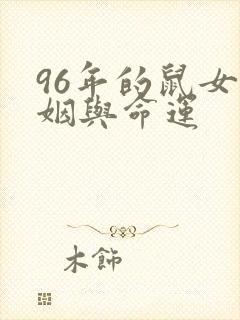 96年的鼠女
姻與命運
木飾